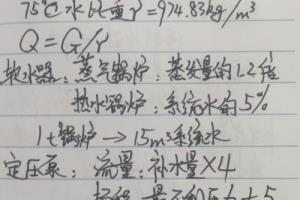 75℃水比重γ=974.83kg/m³
Q=G/γ
软水器：蒸气锅炉：蒸发量的1.2倍
热水锅炉：系统水的5%
1t锅炉→15m³系统水
定压泵：流量：补水量×4
扬程：最不利压力+5